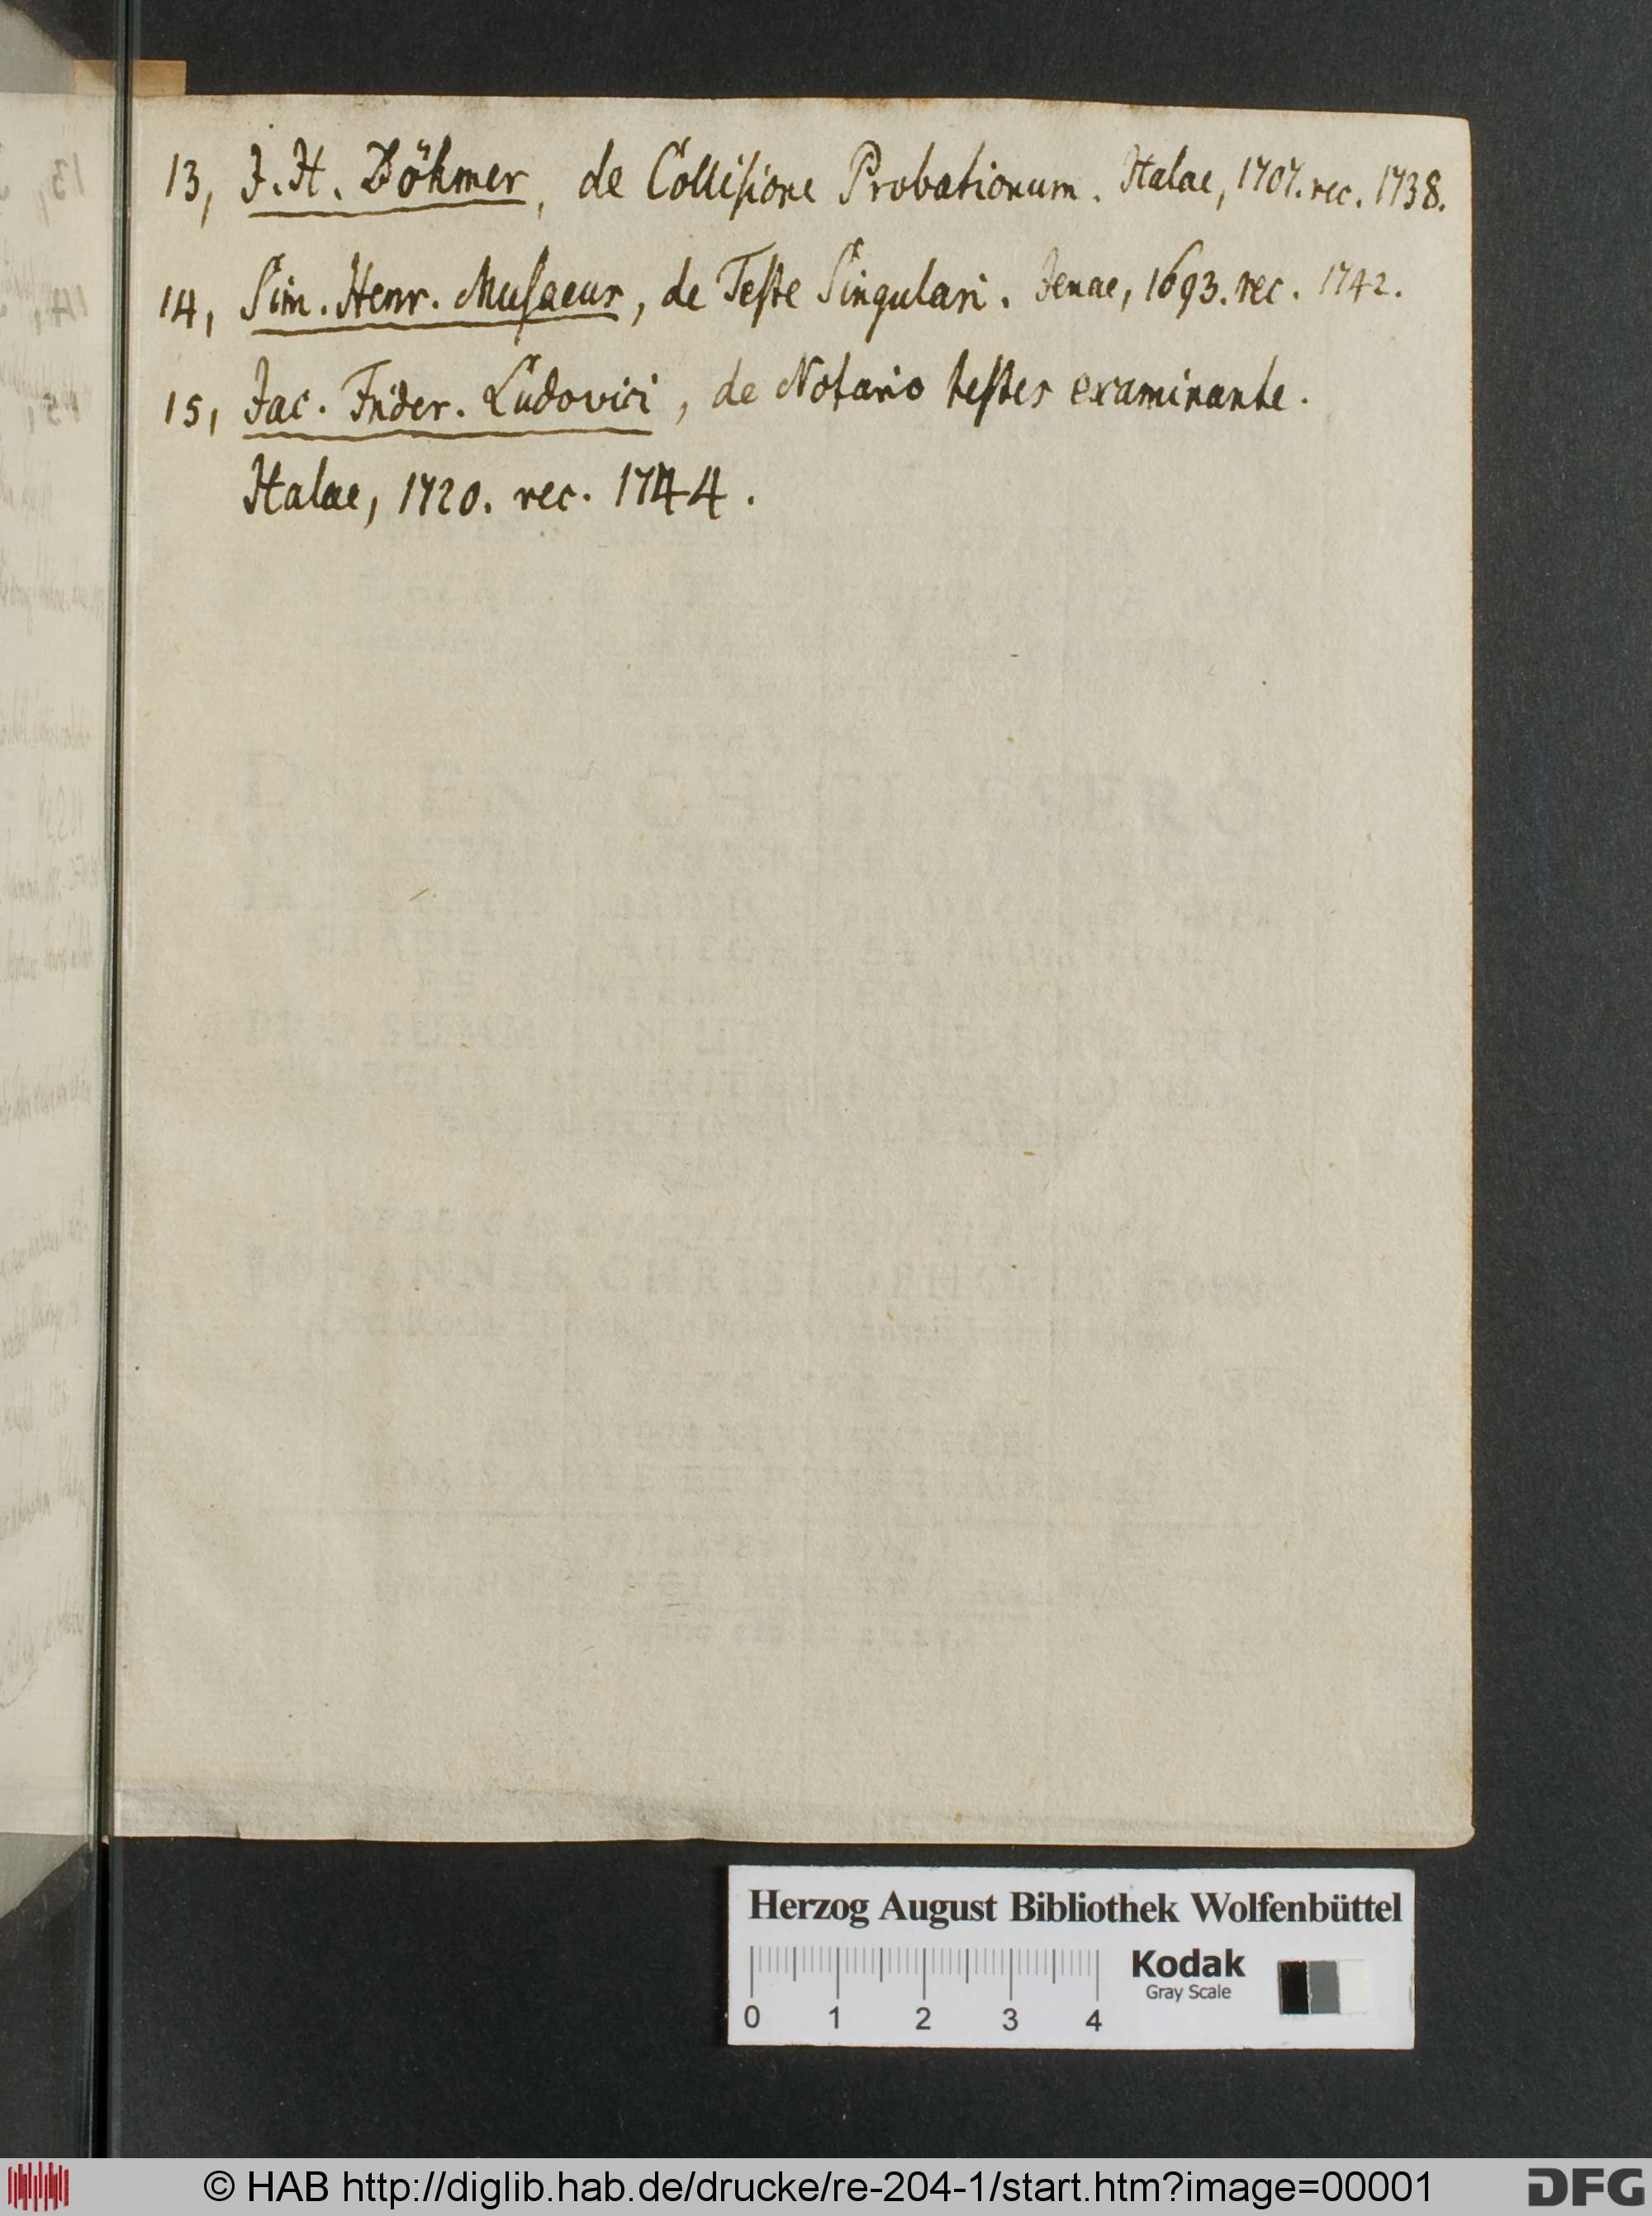 13, J. H. Böhmer, de Colliſione Probationum. Halae, 1707. rec. 1738.
14, Sim. Henr. Muſaeus, de Teſte Singulari. Jenae, 1693. rec. 1742.
15, Jac. Frider. Ludovici, de Notario teſtes examinante.
Halae, 1720. rec. 1744.
Herzog August Bibliothek Wolfenbüttel
Kodak
Gray Scale
0 1 2 3 4
© HAB http://diglib.hab.de/drucke/re-204-1/start.htm?image=00001
DFG